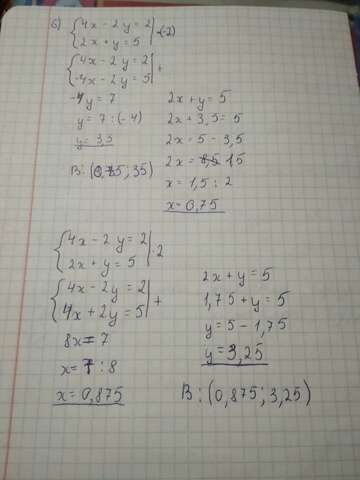 б) { 4x - 2y = 2 |
{ 2x + y = 5 | ·(-2)
{ 4x - 2y = 2 |
{ -4x - 2y = 5 | +
-4y = 7
y = 7 : (-4)
y = 3,5
В: (0,75; 35)
2x + y = 5
2x + 3,5 = 5
2x = 5 - 3,5
2x = 1,5
x = 1,5 : 2
x = 0,75
{ 4x - 2y = 2 |
{ 2x + y = 5 | ·2
{ 4x - 2y = 2 |
{ 4x + 2y = 5 | +
8x = 7
x = 7 : 8
x = 0,875
2x + y = 5
1,75 + y = 5
y = 5 - 1,75
y = 3,25
В: (0,875; 3,25)